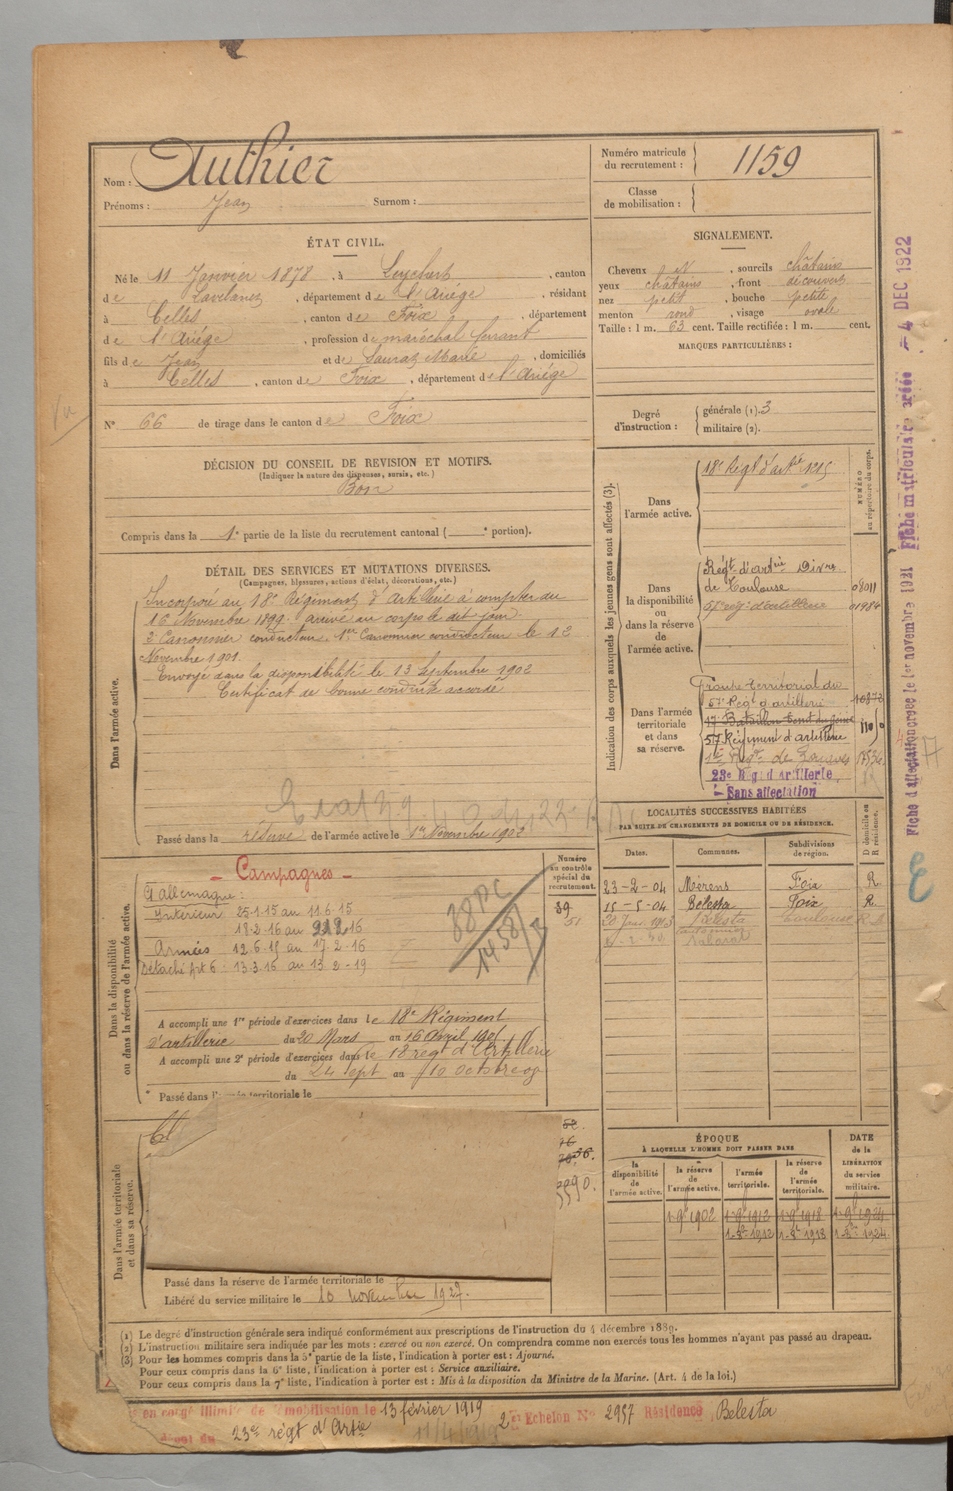 Nom : Authier
Prénoms : Jean Surnom :
Numéro matricule du recrutement : 1159
Classe de mobilisation :
ÉTAT CIVIL.
Né le 11 Janvier 1878, à Leychert, canton
de Lavelanet, département de l'Ariége, résidant
à Celles, canton de Foix, département
de l'Ariége, profession de maréchal ferrant
fils de Jean et de Marie, domiciliés
à Celles, canton de Foix, département de l'Ariége
N° 66 de tirage dans le canton de Foix
Vu
SIGNALEMENT.
Cheveux , sourcils châtains
yeux châtains, front découvert
nez petit, bouche petite
menton rond, visage ovale
Taille : 1 m. 63 cent. Taille rectifiée : 1 m. cent.
MARQUES PARTICULIÈRES :
Degré d'instruction : générale (1). 3
militaire (2).
DÉCISION DU CONSEIL DE REVISION ET MOTIFS.
(Indiquer la nature des dispenses, sursis, etc.)
Bon
Compris dans la 1e partie de la liste du recrutement cantonal ( e portion).
DÉTAIL DES SERVICES ET MUTATIONS DIVERSES.
(Campagnes, blessures, actions d'éclat, décorations, etc.)
Dans l'armée active.
Incorporé au 18e Régiment d'Artillerie à compter du
16 Novembre 1899. Arrivé au corps le dit jour
2 Canonnier conducteur. 1er Canonnier conducteur le 12
Novembre 1901.
Envoyé dans la disponibilité le 13 Septembre 1902
Certificat de bonne conduite accordé
Passé dans la réserve de l'armée active le 1er Novembre 1902
Indication des corps auxquels les jeunes gens sont affectés (3).
NUMÉRO au répertoire du corps.
Dans l'armée active.
18e Régt d'artie 1215
Dans la disponibilité ou dans la réserve de l'armée active.
Régt d'artie Divre
de Toulouse 08011
57e régt d'artillerie 01984
Dans l'armée territoriale et dans sa réserve.
Groupe territorial du
57e Régt d'artillerie
17e Bataillon territ du Génie
57e Régiment d'artillerie
1er Régt de Zouaves
23e Régt d'artillerie
Sans affectation
Fiche d'affectation créée le 1er novembre 1921 Fiche matriculaire créée 4 DEC 1922
LOCALITÉS SUCCESSIVES HABITÉES
PAR SUITE DE CHANGEMENTS DE DOMICILE OU DE RÉSIDENCE.
Dates. Communes. Subdivisions de région. D domicile ou R résidence.
23-2-04 Mérens Foix R.
15-5-04 Belesta Foix R.
Belesta Toulouse
Dans la disponibilité ou dans la réserve de l'armée active.
Numéro au contrôle spécial du recrutement.
39
- Campagnes -
Intérieur 25-1-15 au 11-6-15
Armées 12-6-15 au 17-2-16
Détaché 13-3-16 au 13-2-19
A accompli une 1re période d'exercices dans le 18e Régiment
d'artillerie du 20 Mars au 16 avril
A accompli une 2e période d'exercices dans le 18 régt d'Artillerie
du 24 sept au 10 octobre
Passé dans l'armée territoriale le
Dans l'armée territoriale et dans sa réserve.
Passé dans la réserve de l'armée territoriale le
Libéré du service militaire le 10 novembre 1927.
ÉPOQUE
À LAQUELLE L'HOMME DOIT PASSER DANS
DATE de la LIBÉRATION du service militaire.
la disponibilité de l'armée active. la réserve de l'armée active. l'armée territoriale. la réserve de l'armée territoriale.
1-9bre 1902 1-9bre 1912 1-9bre 1918 1-9bre 1924
1-8bre 1912 1-8bre 1918 1-8bre 1924
(1) Le degré d'instruction générale sera indiqué conformément aux prescriptions de l'instruction du 4 décembre 1889.
(2) L'instruction militaire sera indiquée par les mots : exercé ou non exercé. On comprendra comme non exercés tous les hommes n'ayant pas passé au drapeau.
(3) Pour les hommes compris dans la 5e partie de la liste, l'indication à porter est : Ajourné.
Pour ceux compris dans la 6e liste, l'indication à porter est : Service auxiliaire.
Pour ceux compris dans la 7e liste, l'indication à porter est : Mis à la disposition du Ministre de la Marine. (Art. 4 de la loi.)
en congé illimité de démobilisation le 13 février 1919 2e Echelon N° 2957 Résidence Belesta
dépôt du 23e régt d'Artie